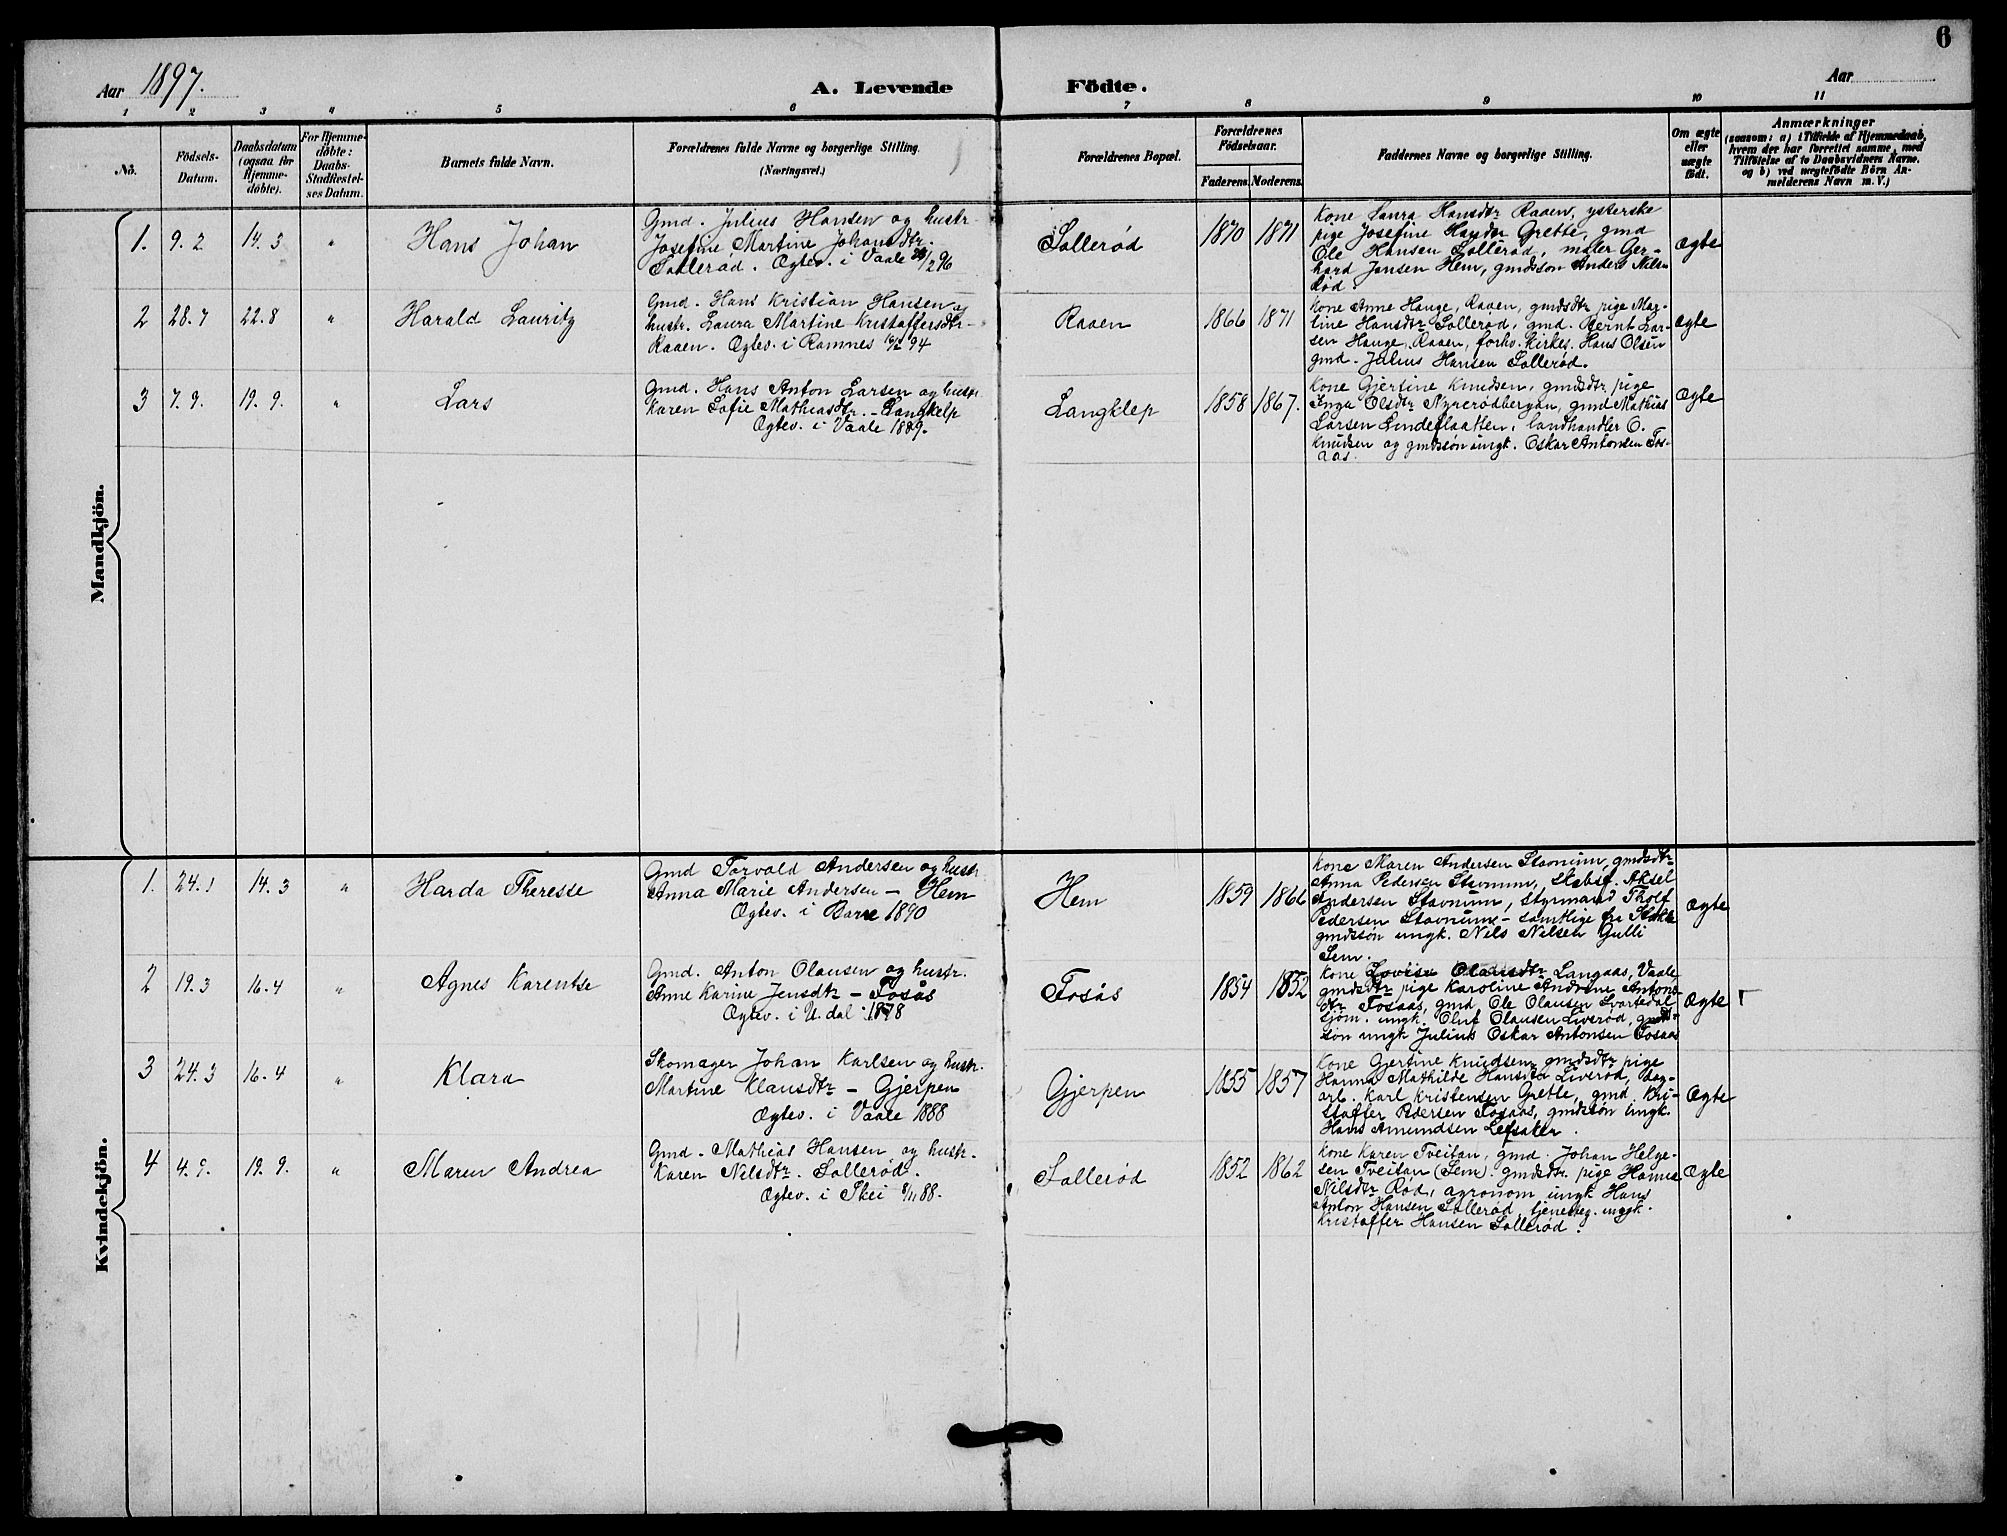 6
Aar 1897.
A. Levende Födte.
Aar
1 2 3 4 5 6 7 8 9 10 11
No.
Födsels-
Datum.
Daabsdatum
(ogsaa for
Hjemme-
döbte).
For Hjemme-
döbte:
Daabs-
Stadfæstel-
ses Datum.
Barnets fulde Navn.
Forældrenes fulde Navne og borgerlige Stilling.
(Næringsvei.)
Forældrenes Bopæl.
Forældrenes
Födselsaar.
Faderens. Moderens.
Faddernes Navne og borgerlige Stilling.
Om ægte
eller
uægte
födt.
Anmærkninger
(saasom: a) i Tilfælde af Hjemmedaab,
hvem der har forrettet samme, med
Tilföielse af to Daabsvidners Navne.
og b) ved uægtefödte Börn An-
melderens Navn m. V.)
Mandkjön.
1. 9. 2 14. 3 "
Hans Johan
Gmd. Julius Hansen og hustr.
Josefine Martine Johansdtr.
Sollerød. Ægtev. i Vaale /2 96
Sollerød
1870 1871
Kone Laura Hansdtr Raaen, ysterske
pige Josefine Grette, gmd
Ole Hansen Sollerød, maler Ger-
hard Jansen Hem, gmdssøn Anders Nilsen
Rød.
Ægte
2 28. 7 22. 8 "
Harald Lauritz
Gmd. Hans Kristian Hansen og
hustr. Laura Martine Kristaffersdtr-
Raaen. Ægtev. i Ramnes 94
Raaen
1866 1871
Kone Anne Hauge, Raaen, gmdsdtr pige Mar-
tine Hansdtr Sollerød, gmd. Bernt Lar-
sen Hauge, Raaen, forhv. kirkes. Hans Olsen
gmd. Julius Hansen Sollerød.
Ægte
3 7. 9. 19. 9. "
Lars
Gmd. Hans Anton Larsen og hustr.
Karen Sofie Mathiasdtr. - Langklep
Ægtev. i Vaale 1889.
Langklep
1858 1867.
Kone Gjertine Knudsen, gmdsdtr pige
Inga Olsdtr, gmd Mathias
Larsen Lindeflaatten, landhandler O.
Knudsen og gmdssøn ungk. Oskar Antonsen Fos-
aas.
Ægte
Kvindekjön.
1. 24. 1 14. 3 "
Harda Theresse
Gmd Torvald Andersen og hustr.
Anna Marie Andersen - Hem
Ægtev. i Borre 1890
Hem
1859 1866
Kone Maren Andersen Stavnum, gmdsdtr
Anna Pedersen Stavnum, Skibsf. Aksel
Andersen Stavnum, styrmand Tholf
Pedersen Stavnum - samtlige fra Stokke
gmdssøn ungk. Nils Nilsen Gulli
Sem.
Ægte
2 19. 3 16. 4 "
Agnes Karentse
Gmd. Anton Olausen og hustr.
Anne Karine Jensdtr - Fosås
Ægtev. i U. dal 1878
Fosås
1854 1852
Kone Lovise Olausdtr Langaas, Vaale
gmdsdtr pige Karoline Andrine Antons-
dtr Fosaas, gmd Ole Olausen Svartedal
sjøm. ungk. Oluf Olausen Liverød, gmds-
søn ungk Julius Oskar Antonsen Fosaas
Ægte
3 24. 3 16. 4 "
Klara
Skomager Johan Karlsen og hustr.
Martine Klausdtr - Gjerpen
Ægtev. i Vaale 1888
Gjerpen
1855 1857
Kone Gjertine Knudsen, gmdsdtr pige
Hanna Mathilde Hansdtr Liverød, dag-
arb. Karl Kristensen Grette, gmd. Kri-
staffer Pedersen Fosaas, gmdssøn ungk.
Hans Amundsen Lefsaker.
Ægte
4 4. 9. 19. 9. "
Maren Andrea
Gmd. Mathias Hansen og hustr.
Karen Nilsdtr. Sollerød.
Ægtev. i Skei 8/11 88.
Sollerød
1852 1862
Kone Karen Tveitan, gmd. Johan Helge-
sen Tveitan (Sem). gmdsdtr. pige Hanna
Nilsdtr Rød, agronom ungk Hans
Anton Hansen Sollerød, tjenesteg. ungk.
Kristaffer Hansen Sollerød.
Ægte